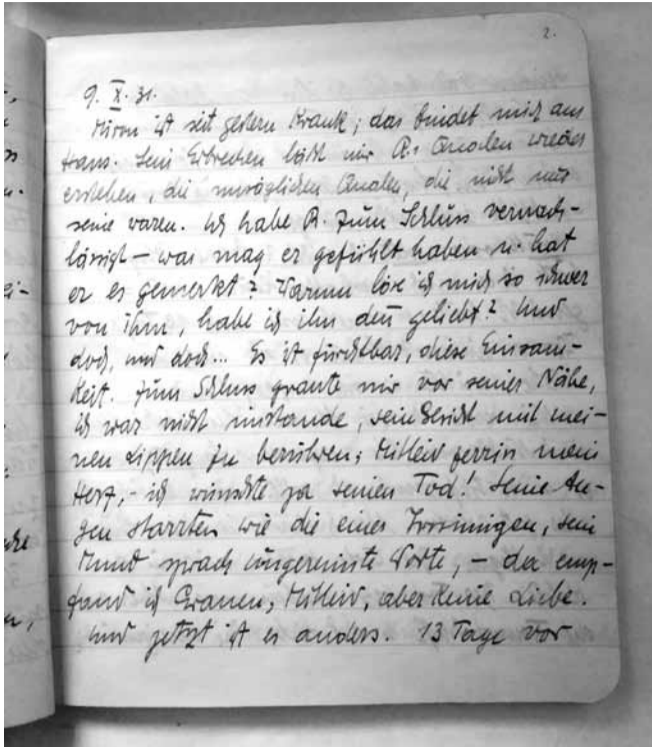 2.
9. X. 31.
Miron ist seit gestern krank; das bindet mich ans
Haus. Sein Erbrechen läßt mir R.s Qualen wieder
erstehen, die unsäglichen Qualen, die nicht nur
seine waren. Ich habe R. zum Schluss vernach-
lässigt – was mag er gefühlt haben u. hat
er es gemerkt? Warum löse ich mich so schwer
von ihm, habe ich ihn den̅ geliebt? Und
doch, und doch... Es ist furchtbar, diese Einsam-
keit. Zum Schluss graute mir vor seiner Nähe,
ich war nicht imstande, sein Gesicht mit mei-
nen Lippen zu berühren; Mitleid zerriss mein
Herz, – ich wünschte ja seinen Tod! Seine Au-
gen starrten wie die eines Irrsinnigen, sein
Mund sprach ungereimte Worte, – da emp-
fand ich Grauen, Mitleid, aber keine Liebe.
Und jetzt ist es anders. 13 Tage vor